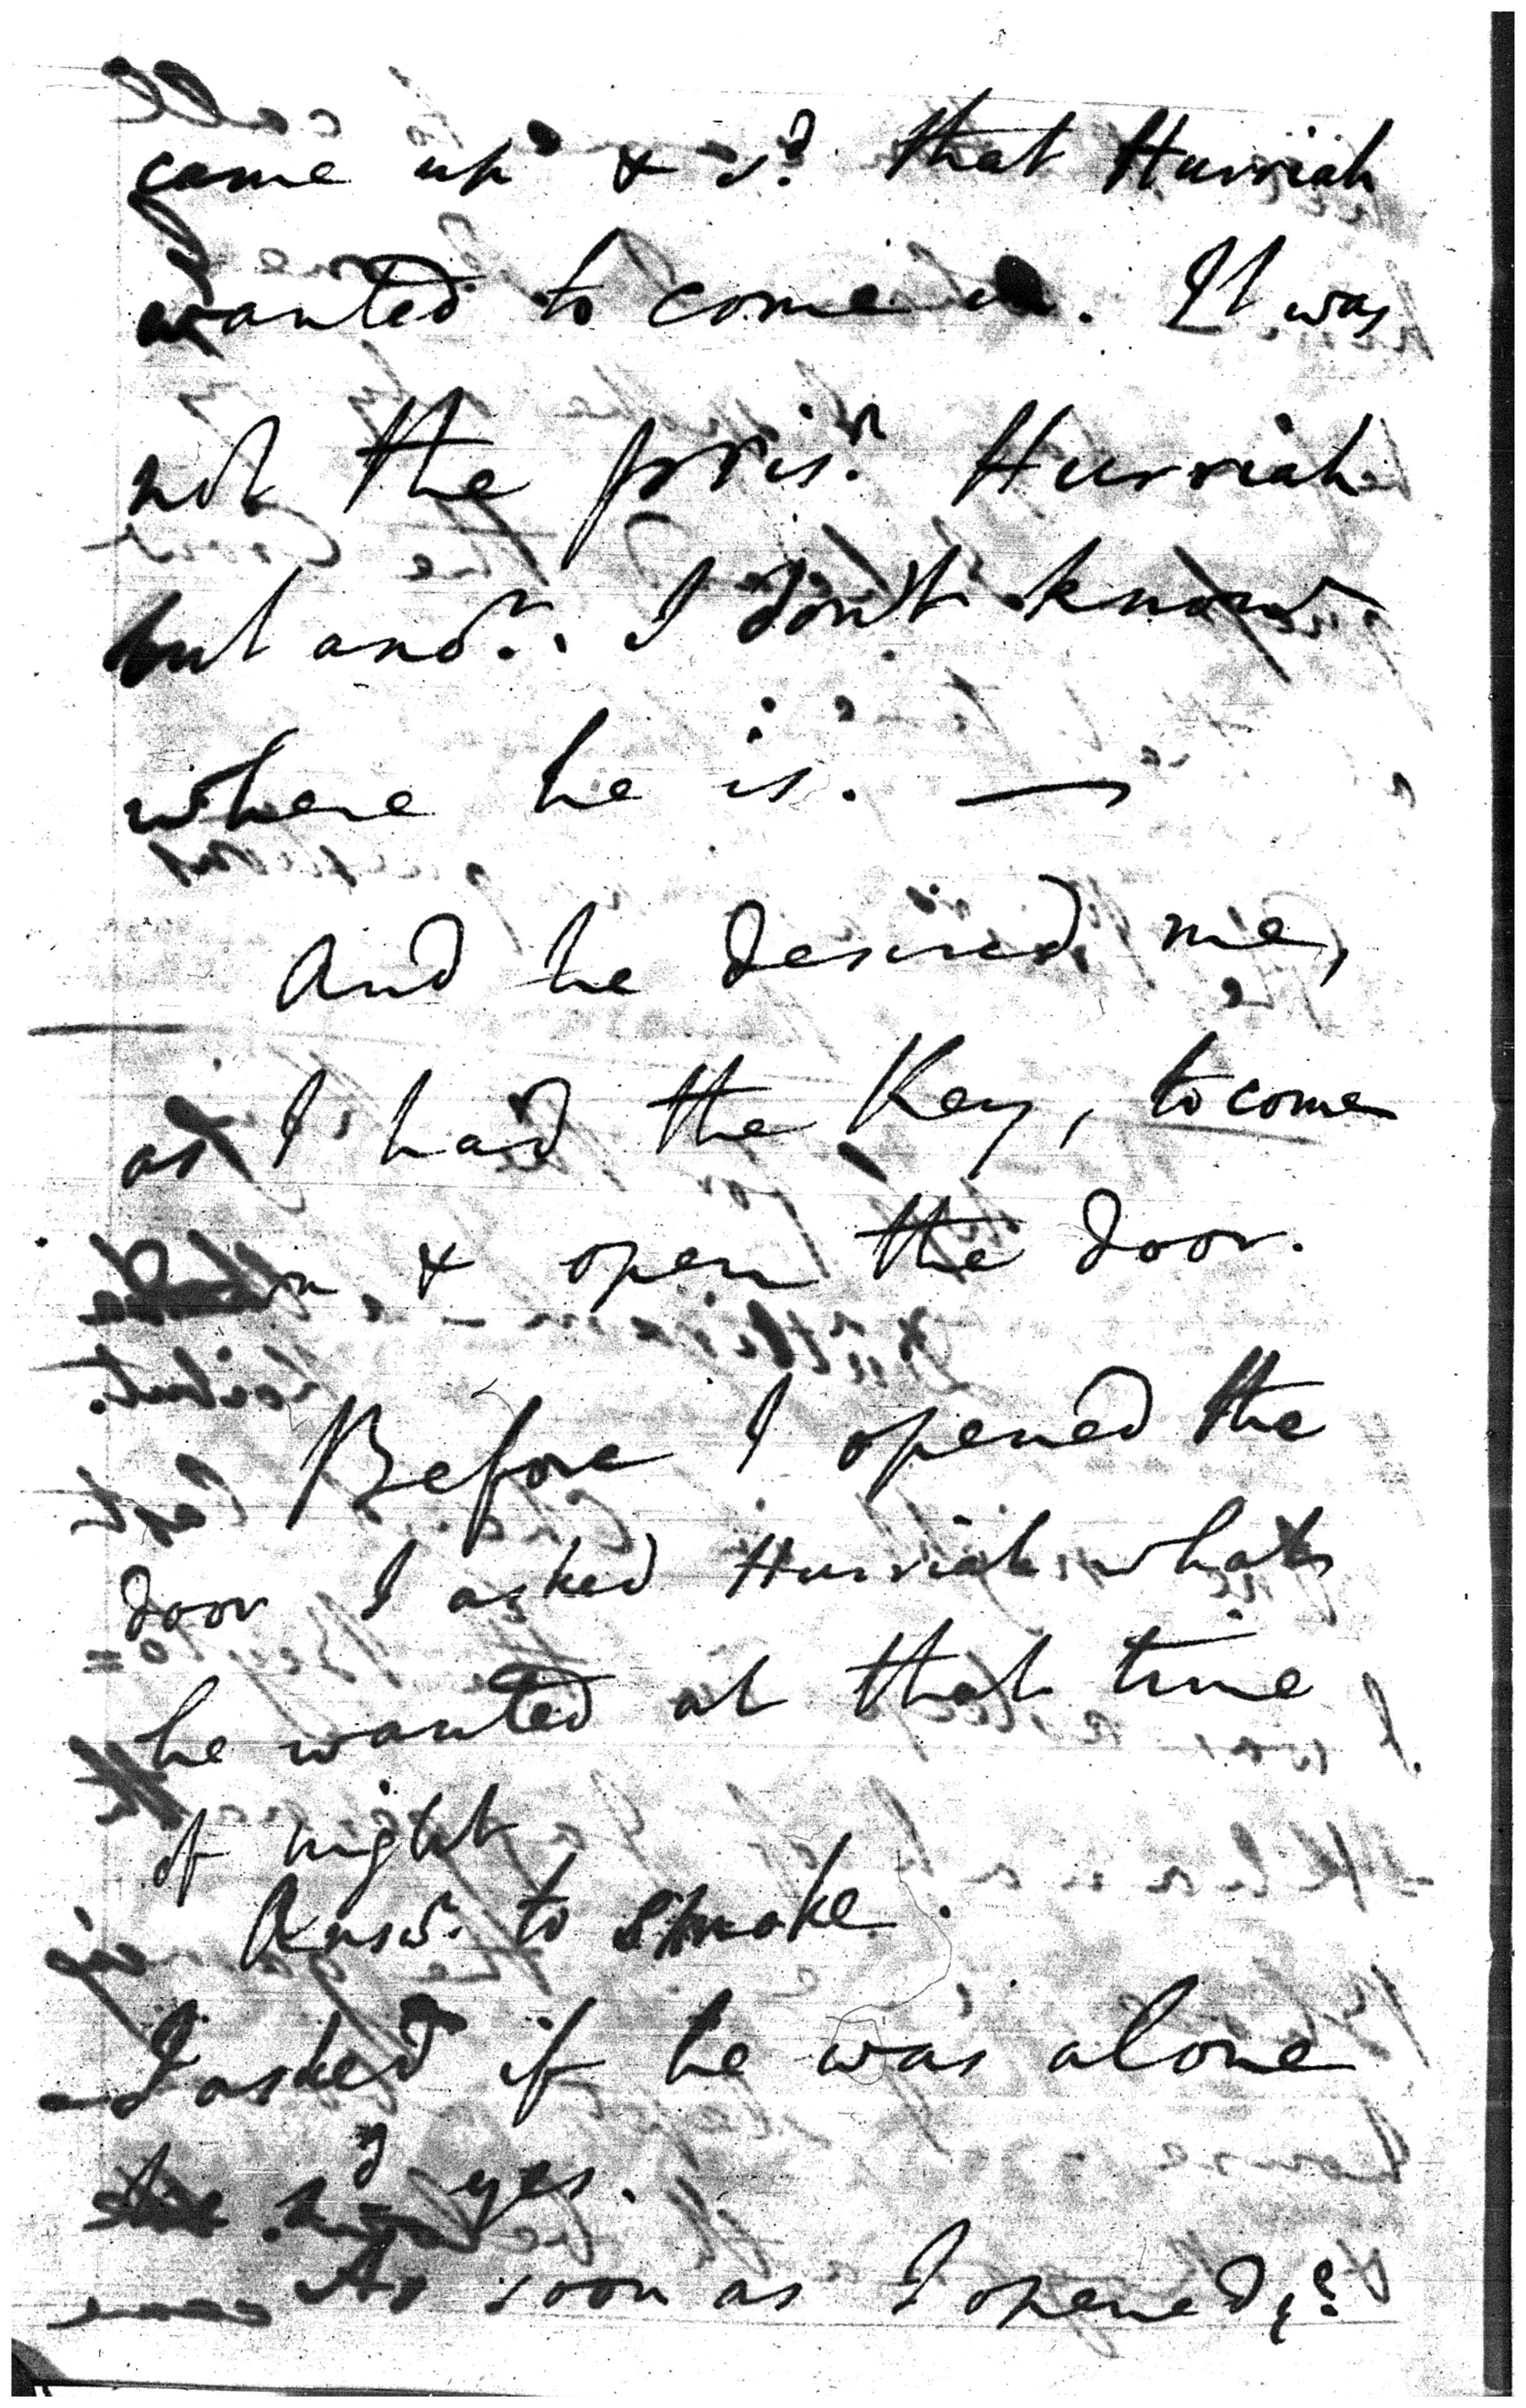 came up & sd. that Hurriah
wanted to come in. It was
not the prisr. Hurriah
but anor. I don't know
where he is. —
And he desired me,
as I had the Key, to come
& open the door.
Before I opened the
door I asked Hurriah what
he wanted at that time
of night
Answd. to smoke.
I asked if he was alone
he sd yes.
As soon as I opened